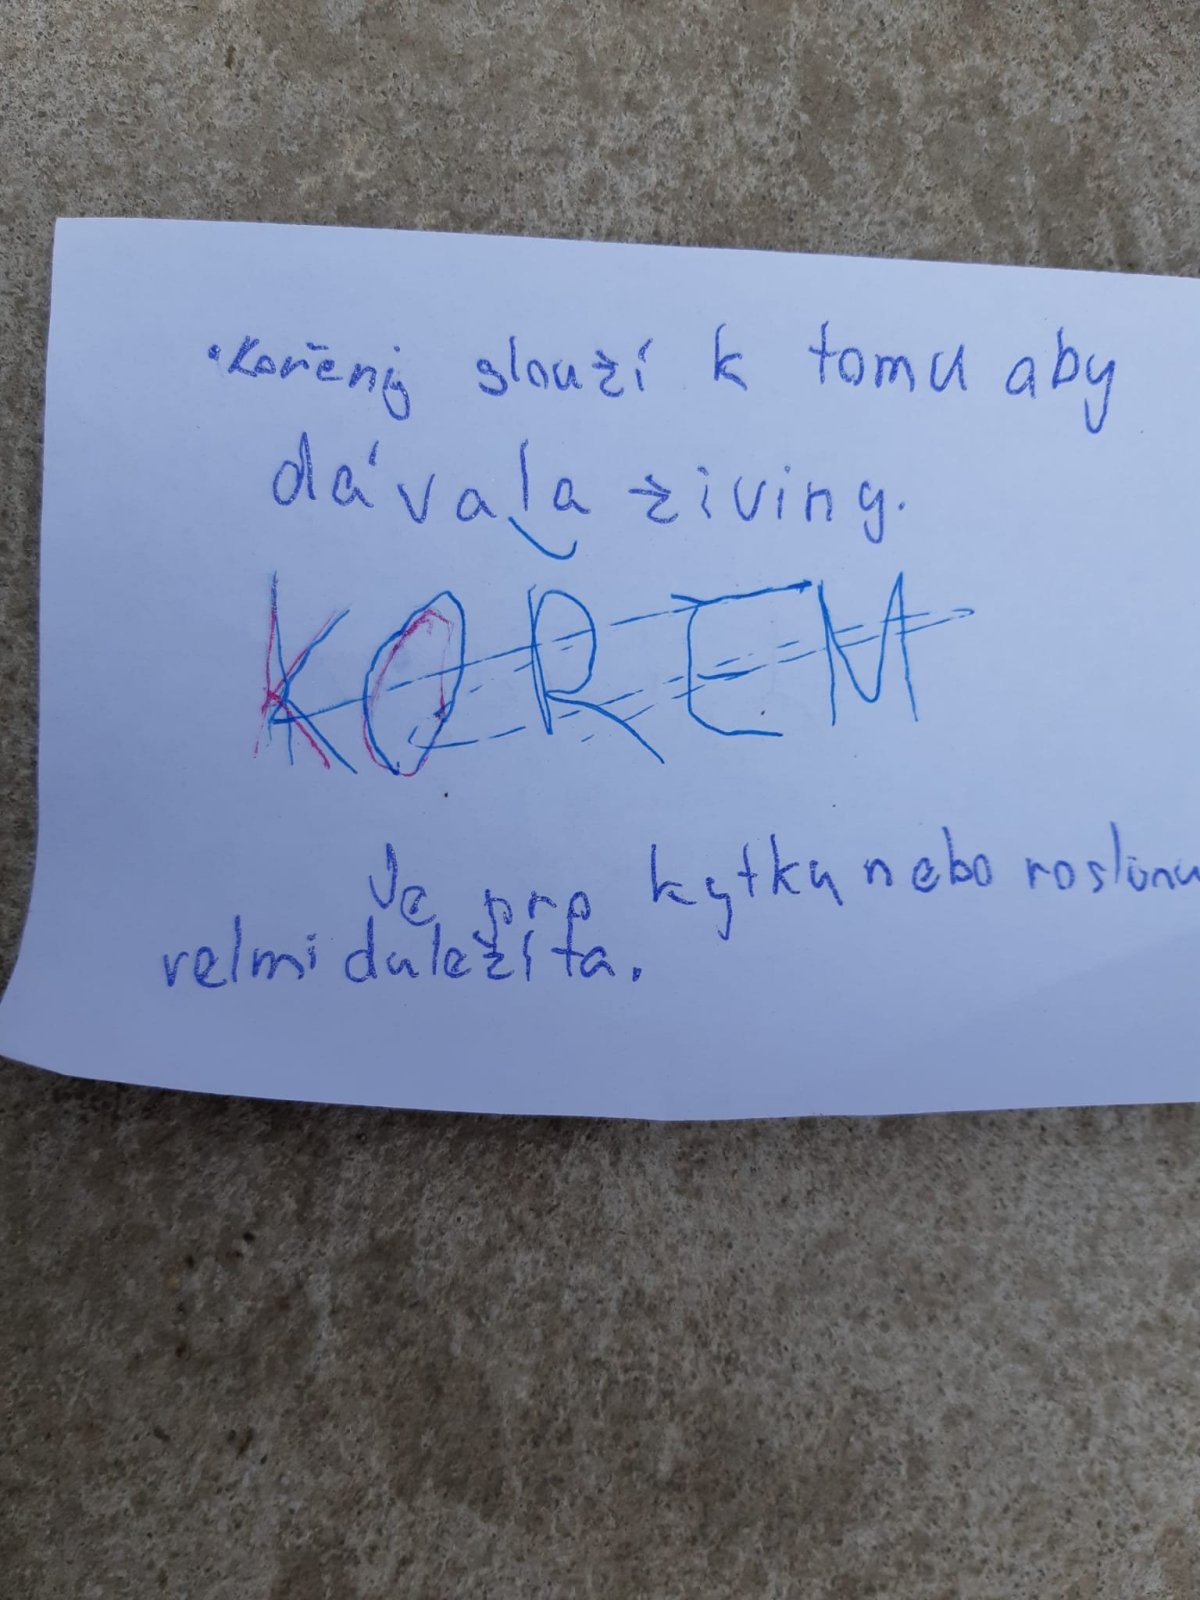 • Kořeny slouží k tomu aby
dávala živiny.
KOREM
Je pro kytku nebo roslinu
velmi duležíta.